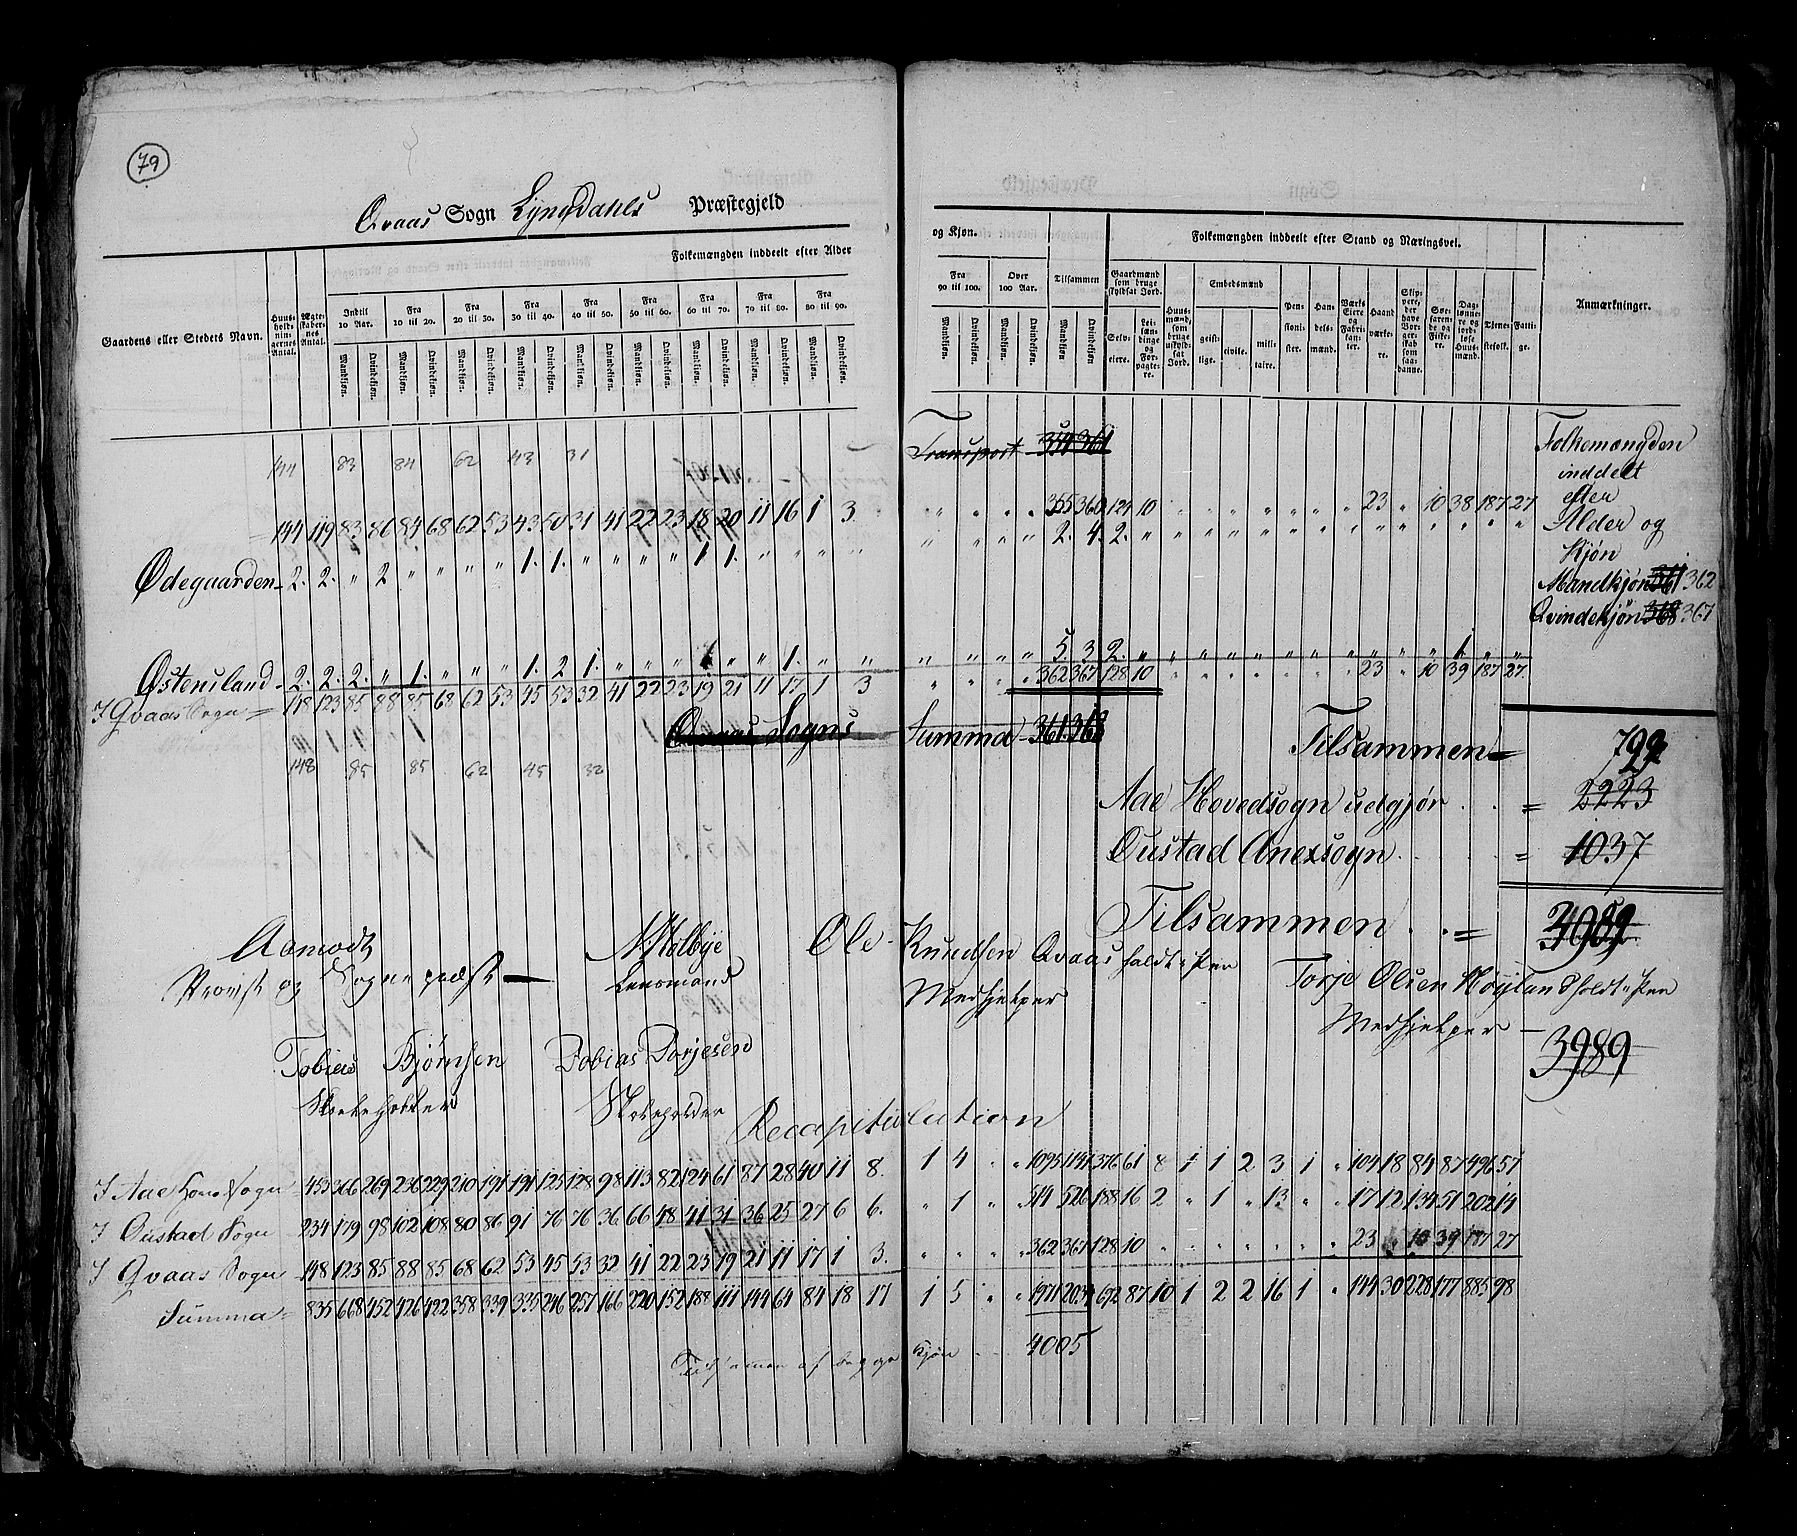 79
Qvaas Sogn Lyngdahls Præstegjeld
Folkemængden inddeelt efter Alder og Kjøn.
Folkemængden inddeelt efter Stand og Næringsvei.
Gaardens eller Stedets Navn.
Huusholdningernes Antal.
Ægteskabernes Antal.
Indtil 10 Aar.
Fra 10 til 20.
Fra 20 til 30.
Fra 30 til 40.
Fra 40 til 50.
Fra 50 til 60.
Fra 60 til 70.
Fra 70 til 80.
Fra 80 til 90.
Fra 90 til 100.
Over 100 Aar.
Tilsammen
Mandkjøn. Qvindekjøn.
Gaardmænd som bruge skyldsat Jord.
Selveiere.
Leilændinge og Forpagtere.
Huusmænd, som bruge uskyldsat Jord.
Embedsmænd
geistlige.
civile.
militaire.
Pensionister.
Handelsmænd.
Værks Eiere og Fabrikanter.
Haandværkere.
Skippere, der have Borgerskab som saadanne.
Søefarende og Fiskere.
Daglønnere og jordløse Huusmænd.
Tjenestefolk.
Fattige.
Anmærkninger.
144 83 84 62 43 31
Transport 354 361
144 119 83 86 84 68 62 53 43 50 31 41 22 23 18 20 11 16 1 3 " " " " 355 360 124 10 " " " " " " " 23 " 10 38 187 27
Ødegaarden 2. 2. " 2 " " " " 1. 1. " " " " 1 1. " " " " " " " " 2. 4. 2. " " " " " " " " " " " " " "
Østensland 2. 2. 2. " 1. " " " 1. 2 1. " " " 1 " " 1. " " " " " " 5. 3 2. " " " " " " " " " " " 1. " "
I Qvaas Sogn = 148 123 85 88 85 68 62 53 45 53 32 41 22 23 19 21 11 17 1 3 " " " " 362 367 128 10 " " " " " " " 23 " 10 39 187 27
Qvaas Sogns Summa 361 368
148 85 85 62 45 32
Folkemængden
inddelt
efter
Alder og
Kjøn
Mandkjøn 361 362
Qvindekjøn 368 367
Tilsammen 729
Aae Hovedsogn udgjør = 2223
Oustad Anexsogn = 1037
Tilsammen = 3989
3989
Aamodt
Provst og Sogneprest
Lensmand
Ole Knudsen Qvaas holdt Pen
Medhjelper
Torje Olsen Høyland holdt Pen
Medhjelper
Tobias Bjørnsen
Tobias Torjesen
Recapitulation
I Aae Hoved Sogn 453 366 269 236 229 210 191 191 125 128 98 113 82 124 61 87 28 40 11 8. 1 4 " " 1095 1141 376 61 8 1 1 2 3 1 " 104 18 84 87 496 57
I Oustad Sogn 234 179 98 102 108 80 86 91 76 76 36 66 48 41 31 36 25 27 6 6. " 1 " " 514 526 188 16 2 " 1 " 13 " " 17 12 134 51 202 14
I Qvaas Sogn 148 123 85 88 85 68 62 53 45 53 32 41 22 23 19 21 11 17 1 3. " " " " 362 367 128 10 " " " " " " " 23 " 10 39 187 27
Summa 835 668 452 426 422 358 339 335 246 257 166 220 152 188 111 144 64 84 18 17 1 5 " " 1971 2034 692 87 10 1 2 2 16 1 " 144 30 228 177 885 98
Tilsammen af begge Kjøn 4005